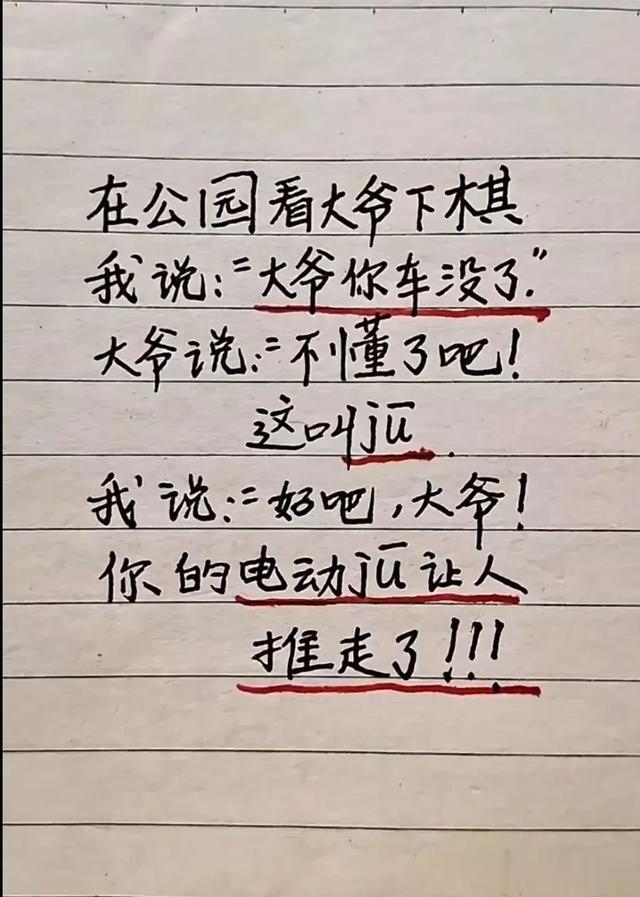 在公园看大爷下棋
我说:"大爷你车没了."
大爷说:"不懂了吧!
这叫jū.
我说:"好吧,大爷!
你的电动jū让人
推走了!!!